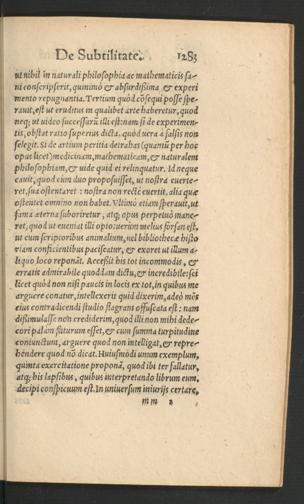 De Subtilitate. 1283
ut nihil in naturali philosophia ac mathematicis sa-
ni conscripserit, quinimò & absurdissima, & experi
mento repugnantia. Tertium quòd cōsequi posse spe-
rauit, est ut eruditus in qualibet arte haberetur, quod
neq; ut uideo successurū illi est: nam si de experimen-
tis, obstat ratio superius dicta, quòd uera à falsis non
selegit. Si de artium peritia detrahas (quantū per hoc
opus licet) medicinam, mathematicam, & naturalem
philosophiam, & uide quid ei relinquatur. Id neque
cauit, quod cùm duo proposuisset, ut nostra euerte-
ret, sua ostentaret: nostra non rectè euertit, alia quæ
ostentet omnino non habet. Vltimò etiam sperauit, ut
fama æterna suboriretur, atq; opus perpetuò mane-
ret, quod ut eueniat illi opto: uerùm melius forsan est,
ut cum scriptoribus animalium, uel bibliothecæ histo
riam conficientibus paciscatur, & exoret ut illum a-
liquo loco reponāt. Accessit his tot incommodis, &
erratis admirabile quoddam dictu, & incredibile: sci
licet quòd non nisi paucis in locis ex tot, in quibus me
arguere conatur, intellexerit quid dixerim, adeò mēs
eius contradicendi studio flagrans offuscata est: nam
dissimulasse non crediderim, quod illi non mihi dede-
cori palàm futurum esset, & cum summa turpitudine
coniunctum, arguere quod non intelligat, & repre-
hendere quod nō dicat. Huiusmodi unum exemplum,
quinta exercitatione proponā, quod ibi ter fallatur,
atq; his lapsibus, quibus interpretando librum eum,
decipi conspicuum est. In uniuersum iniurijs certare,
mm 2